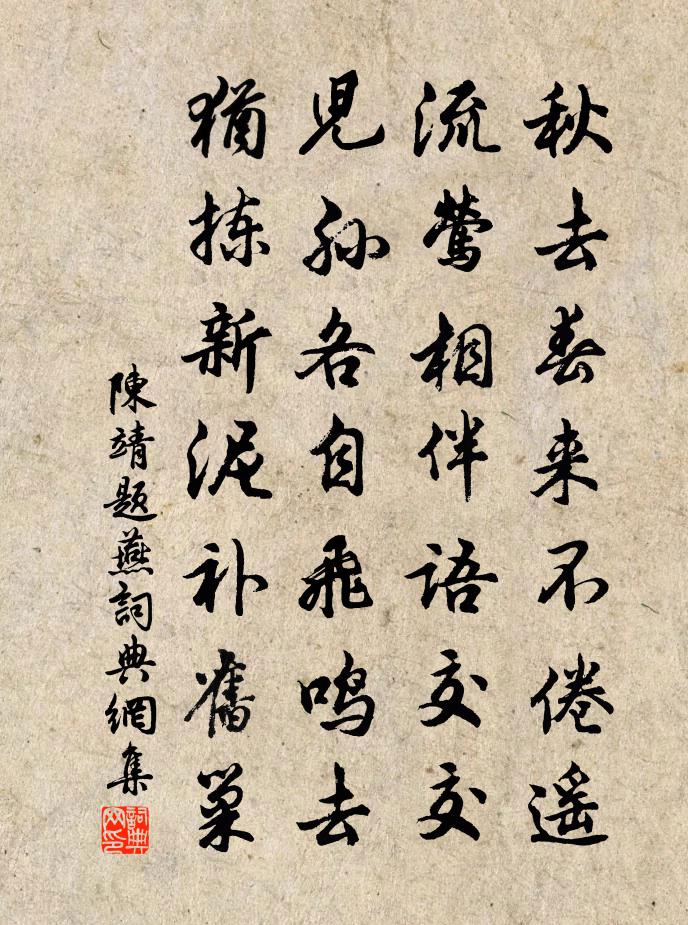 秋去春来不倦遥
流莺相伴语交交
児孙各自飛鸣去
猶拣新泥补舊巢
陳靖题燕詞典網集
詞典网印